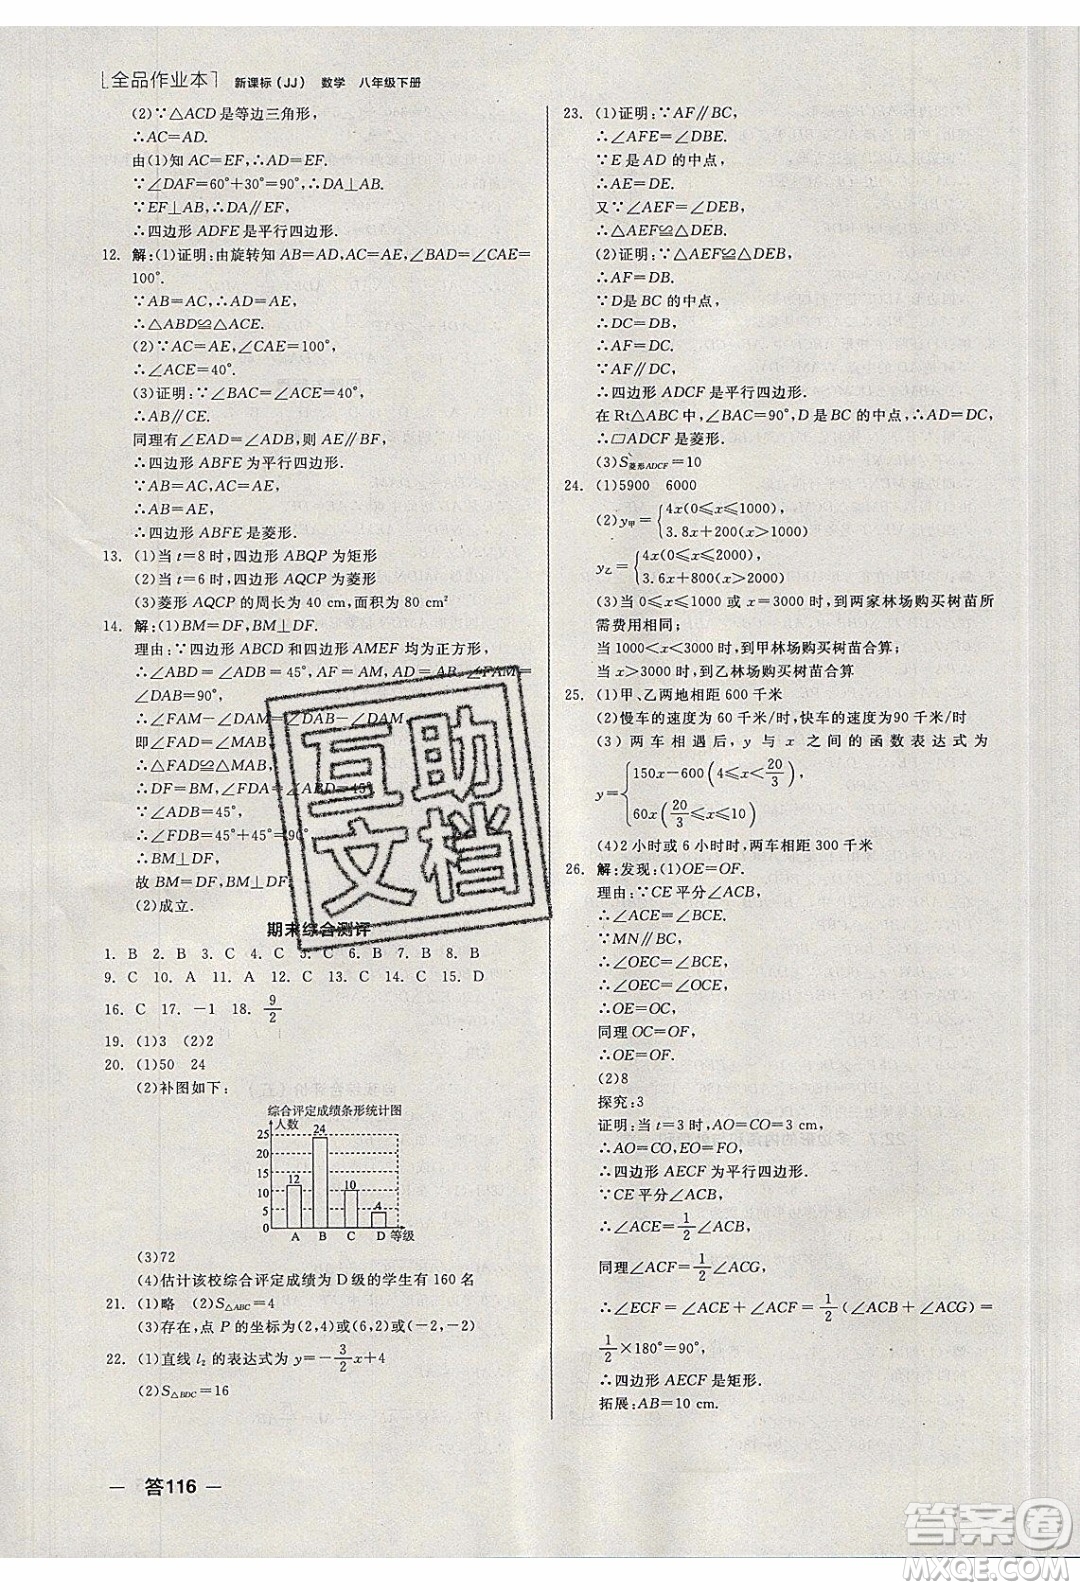 全品作业本 新课标(JJ) 数学 八年级下册
(2)∵△ACD是等边三角形,
∴AC=AD.
由(1)知 AC=EF,∴AD=EF.
∵∠DAF=60°+30°=90°,∴DA⊥AB.
∵EF⊥AB,∴DA∥EF,
∴四边形 ADFE 是平行四边形.
12. 解:(1)证明:由旋转知 AB=AD,AC=AE,∠BAD=∠CAE=
100°.
∵AB=AC,∴AD=AE,
∴△ABD≌△ACE.
(2)∵AC=AE,∠CAE=100°,
∴∠ACE=40°.
(3)证明:∵∠BAC=∠ACE=40°,
∴AB∥CE.
同理有∠EAD=∠ADB,则 AE∥BF,
∴四边形 ABFE 为平行四边形.
∵AB=AC,AC=AE,
∴AB=AE,
∴四边形 ABFE 是菱形.
13. (1)当 t=8 时,四边形 ABQP 为矩形
(2)当 t=6 时,四边形 AQCP 为菱形
(3)菱形 AQCP 的周长为 40 cm,面积为 80 cm²
14. 解:(1)BM=DF,BM⊥DF.
理由:∵四边形 ABCD 和四边形 AMEF 均为正方形,
∴∠ABD=∠ADB=45°,AF=AM,AD=AB,∠FAM=∠DAB=
90°,
∴∠FAM−∠DAM=∠DAB−∠DAM,
即∠FAD=∠MAB,
∴△FAD≌△MAB,
∴DF=BM,∠FDA=∠ABD=45°.
∵∠ADB=45°,
∴∠FDB=45°+45°=90°,
∴BM⊥DF.
故 BM=DF,BM⊥DF.
(2)成立.
期末综合测评
1. B 2. B 3. C 4. C 5. C 6. B 7. B 8. B
9. C 10. A 11. A 12. C 13. C 14. C 15. D
16. C 17. −1 18. 9/2
19. (1)3 (2)2
20. (1)50 24
(2)补图如下:
综合评定成绩条形统计图
人数
25
20
15
10
5
0
12
24
10
4
A B C D 等级
(3)72
(4)估计该校综合评定成绩为 D 级的学生有 160 名
21. (1)略 (2)S△ABC=4
(3)存在,点 P 的坐标为(2,4)或(6,2)或(−2,−2)
22. (1)直线 l₂ 的表达式为 y=−3/2x+4
(2)S△BDC=16
— 答116 —
23. (1)证明:∵AF∥BC,
∴∠AFE=∠DBE.
∵E 是 AD 的中点,
∴AE=DE.
又∵∠AEF=∠DEB,
∴△AEF≌△DEB.
(2)证明:∵△AEF≌△DEB,
∴AF=DB.
∵D是 BC 的中点,
∴DC=DB,
∴AF=DC.
∵AF∥DC,
∴四边形 ADCF 是平行四边形.
在 Rt△ABC 中,∠BAC=90°,D 是 BC 的中点,∴AD=DC,
∴▱ADCF 是菱形.
(3)S菱形ADCF=10
24. (1)5900 6000
(2)y甲={4x(0⩽x⩽1000),
3.8x+200(x>1000),
y乙={4x(0⩽x⩽2000),
3.6x+800(x>2000)
(3)当 0⩽x⩽1000 或 x=3000 时,到两家林场购买树苗所
需费用相同;
当 1000<x<3000 时,到甲林场购买树苗合算;
当 x>3000 时,到乙林场购买树苗合算
25. (1)甲、乙两地相距 600 千米
(2)慢车的速度为 60 千米/时,快车的速度为90 千米/时
(3)两车相遇后,y 与 x 之间的函数表达式为
y={150x−600(4⩽x<20/3),
60x(20/3⩽x⩽10)
(4)2 小时或 6 小时时,两车相距 300 千米
26. 解:发现:(1)OE=OF.
理由:∵CE平分∠ACB,
∴∠ACE=∠BCE.
∵MN∥BC,
∴∠OEC=∠BCE,
∴∠OEC=∠OCE,
∴OE=OC,
同理 OC=OF,
∴OE=OF.
(2)8
探究:3
证明:当 t=3 时,AO=CO=3 cm,
∴AO=CO,EO=FO,
∴四边形 AECF 为平行四边形.
∵CE平分∠ACB,
∴∠ACE=1/2∠ACB,
同理∠ACF=1/2∠ACG,
∴∠ECF=∠ACE+∠ACF=1/2(∠ACB+∠ACG)=
1/2×180°=90°,
∴四边形 AECF 是矩形.
拓展:AB=10 cm.
互助
文档
答案圈
MXQE.COM